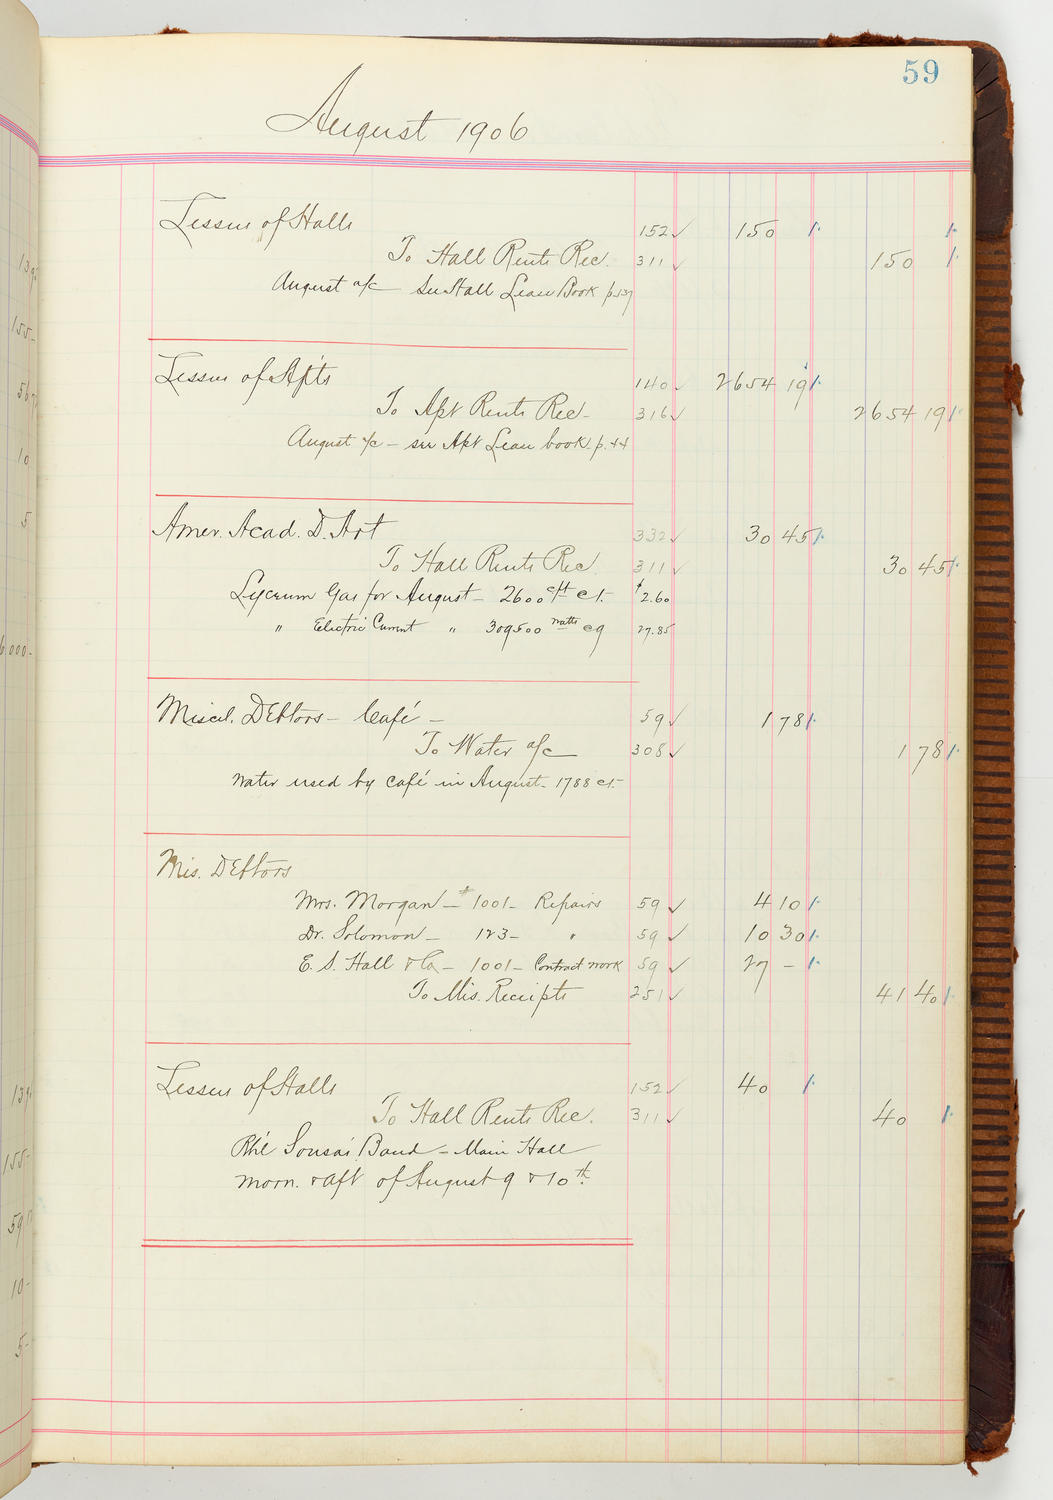 59
August 1906
Lessees of Halls 152 ✓ 150
To Hall Rents Rec. 311 ✓ 150
August a/c See Hall Lease Book p.
Lessees of Apts 140 ✓ 2654 19
To Apt Rents Rec - 316 ✓ 2654 19
August a/c - see Apt Lease book. p. 44
Amer. Acad. D. Art 332 ✓ 30 45
To Hall Rents Rec 311 ✓ 30 45
Lyceum Gas for August - 2600 cft $2.60
" Electric Current " 309500 watts 27.85
Miscel. Debtors - Café - 59 ✓ 1 78
To Water a/c 308 ✓ 1 78
Water used by café in August - 1788 cf.
Mis. Debtors
Mrs. Morgan - # 1001 - Repairs 59 ✓ 4 10
Dr. Solomon - 123 - " 59 ✓ 10 30
E. S. Hall & Co - 1001 - Contract work 59 ✓ 27 -
To Mis. Receipts 251 ✓ 41 40
Lessees of Halls 152 ✓ 40
To Hall Rents Rec. 311 ✓ 40
Sousa's Band - Main Hall
Morn. & Aft of August 9 & 10th.
139
155-
10
5
6000-
139
155-
59
10-
5-